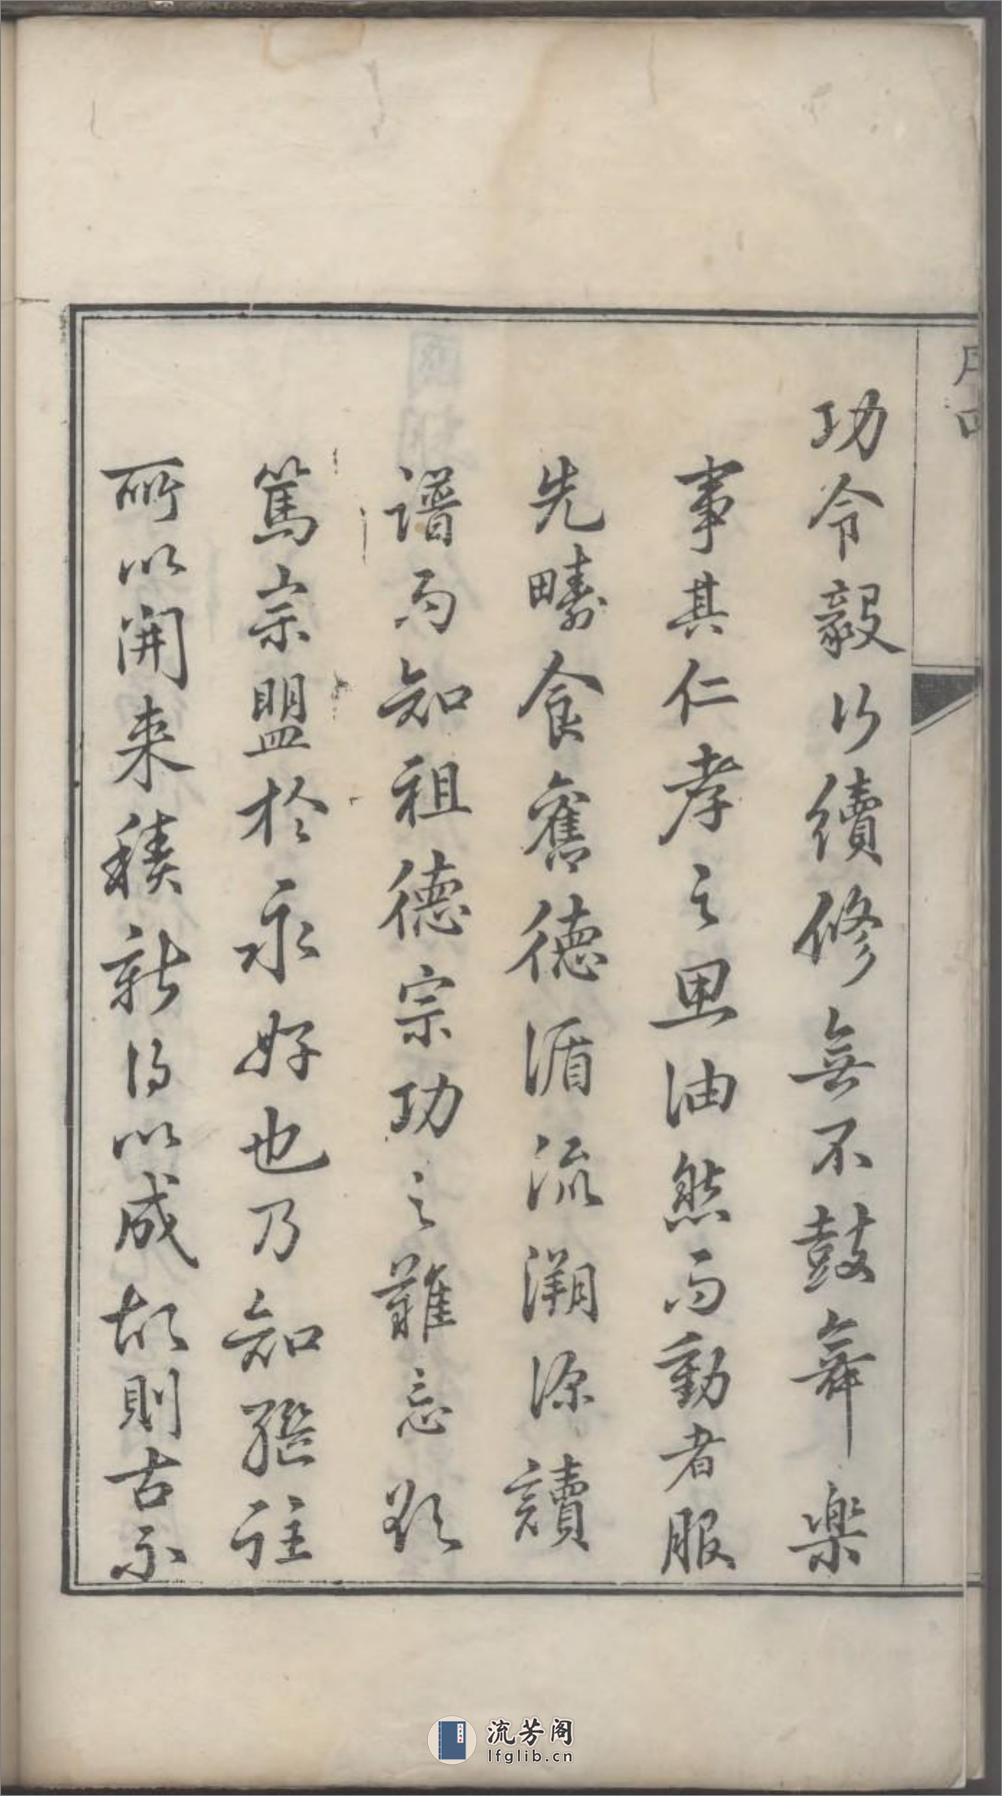 功令毅以續修無不鼓舞樂
事其仁孝之思油然而動者服
先疇食舊德循流溯源讀
譜而知祖德宗功之難忘歟
篤宗盟於永好也乃知繼往
所以開来積新得以成故則古示
流芳阁
lfglib.cn